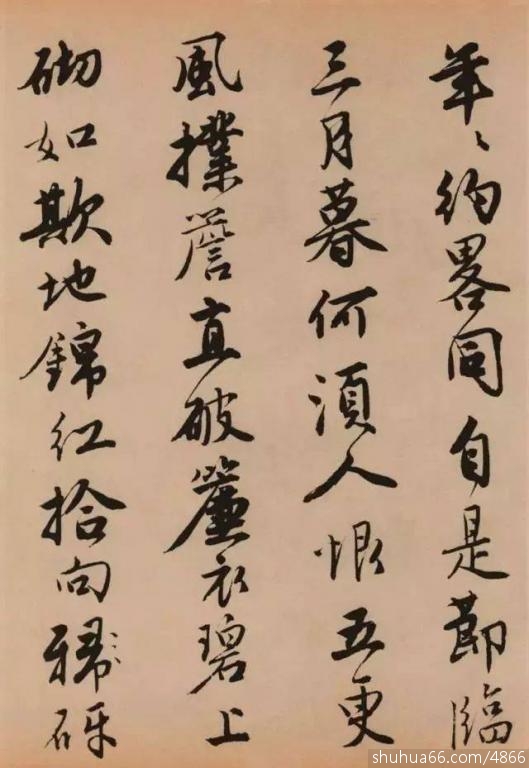 年〻約畧同自是節臨
三月暮何須人恨五更
風撲簷直破簾衣碧上
砌如欺地錦紅拾向砑
shuhua66.com/4866